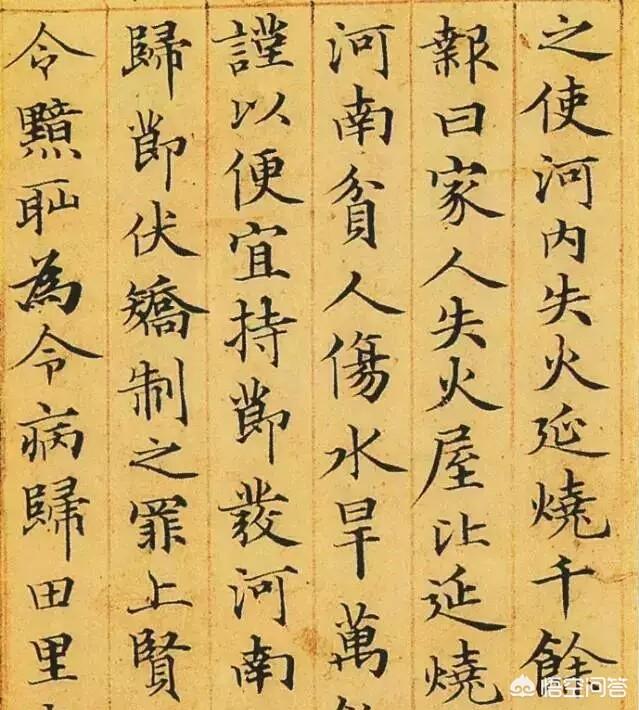 之使河内失火延燒千餘
報曰家人失火屋比延燒
河南貧人傷水旱萬
謹以便宜持節發河南
歸節伏矯制之罪上賢
令黯耻為令病歸田里
悟空问答